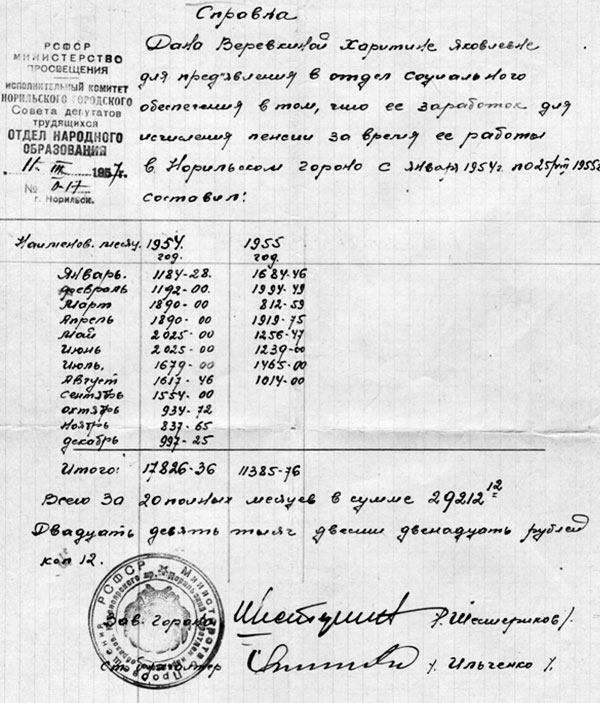 Справка
РСФСР
МИНИСТЕРСТВО
ПРОСВЕЩЕНИЯ
ИСПОЛНИТЕЛЬНЫЙ КОМИТЕТ
НОРИЛЬСКОГО ГОРОДСКОГО
Совета депутатов
трудящихся
ОТДЕЛ НАРОДНОГО
ОБРАЗОВАНИЯ
11 III 1957г.
№ 0-17
г. Норильск.
Дана Веревкиной Харитине Яковлевне
для предъявления в отдел социального
обеспечения в том, что ее заработок для
исчисления пенсии за время ее работы
в Норильском гороно с января 1954г. по 25/VIII 1955г
составил:
Наименов. месяц. 1954 год. 1955 год.
Январь. 1184-28. 1684-46
февраль 1192-00. 1994-49
Март 1890-00 812-59
Апрель 1890-00 1919-75
Май 2025-00 1256-47
Июнь 2025-00 1239-00
Июль. 1679-00 1465-00
Август 1617-46 1014-00
сентябрь 1554-00
октябрь 934-72
Ноябрь 837-65
декабрь 997-25
Итого: 17826-36 11385-76
Всего за 20 полных месяцев в сумме 29212 12
Двадцать девять тысяч двести двенадцать рублей
коп 12.
Зав. Гороно /Шестериков/.
Ст. бухгалтер / Ильченко /.
РСФСР Министерство Просвещения